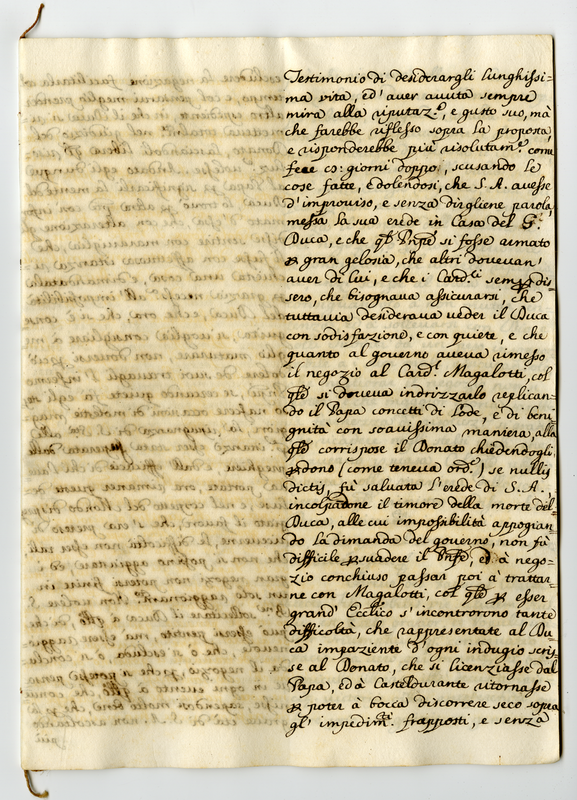 Testimonio di desiderargli lunghissi=
ma vita, ed' aver avuta sempre
mira alla riputaz.e, e gusto suo, mà
che farebbe riflesso sopra la proposta,
e risponderebbe più risolutam.e come
fece co: giorni doppo, scusando le
cose fatte, e dolendosi, che S. A. avesse
d'improviso, e senza dirgliene parola,
messa la sua erede in Casa del G.
Duca, e che qsto Pnpe si fosse armato
p gran gelosia, che altri dovevan'
aver di lui, e che i Card.li semp dis=
sero, che bisognava assicurarsi, che
tuttavia desiderava veder il Duca
con sodisfazione, e con quiete, e che
quanto al governo aveva rimesso
il negozio al Card.l Magalotti, col
qle si doveva indrizzarlo replican=
do il Papa concetti di lode, e di beni
gnità con soavissima maniera, alla
qle corrispose il Donato chiedendogli
pdono (come teneva ord.e) se nullis
dictis, fù salvata l'erede di S. A.
incolpadone il timore della morte del
Duca, alle cui impossibilità appogian=
do la dimanda del governo, non fù
difficile psuadere il Pnpe, ed à nego=
zio conchiuso passar poi à trattar=
ne con Magalotti, col qle p esser
grand' Ecclico s'incontrorono tante
difficoltà, che rappresentate al Du
ca impaziente d'ogni indugio scris=
se al Donato, che si licenziasse dal
Papa, ed à Casteldurante ritornasse
p poter à bocca discorrere seco sopra
gl' impedim.ti frapposti, e senza